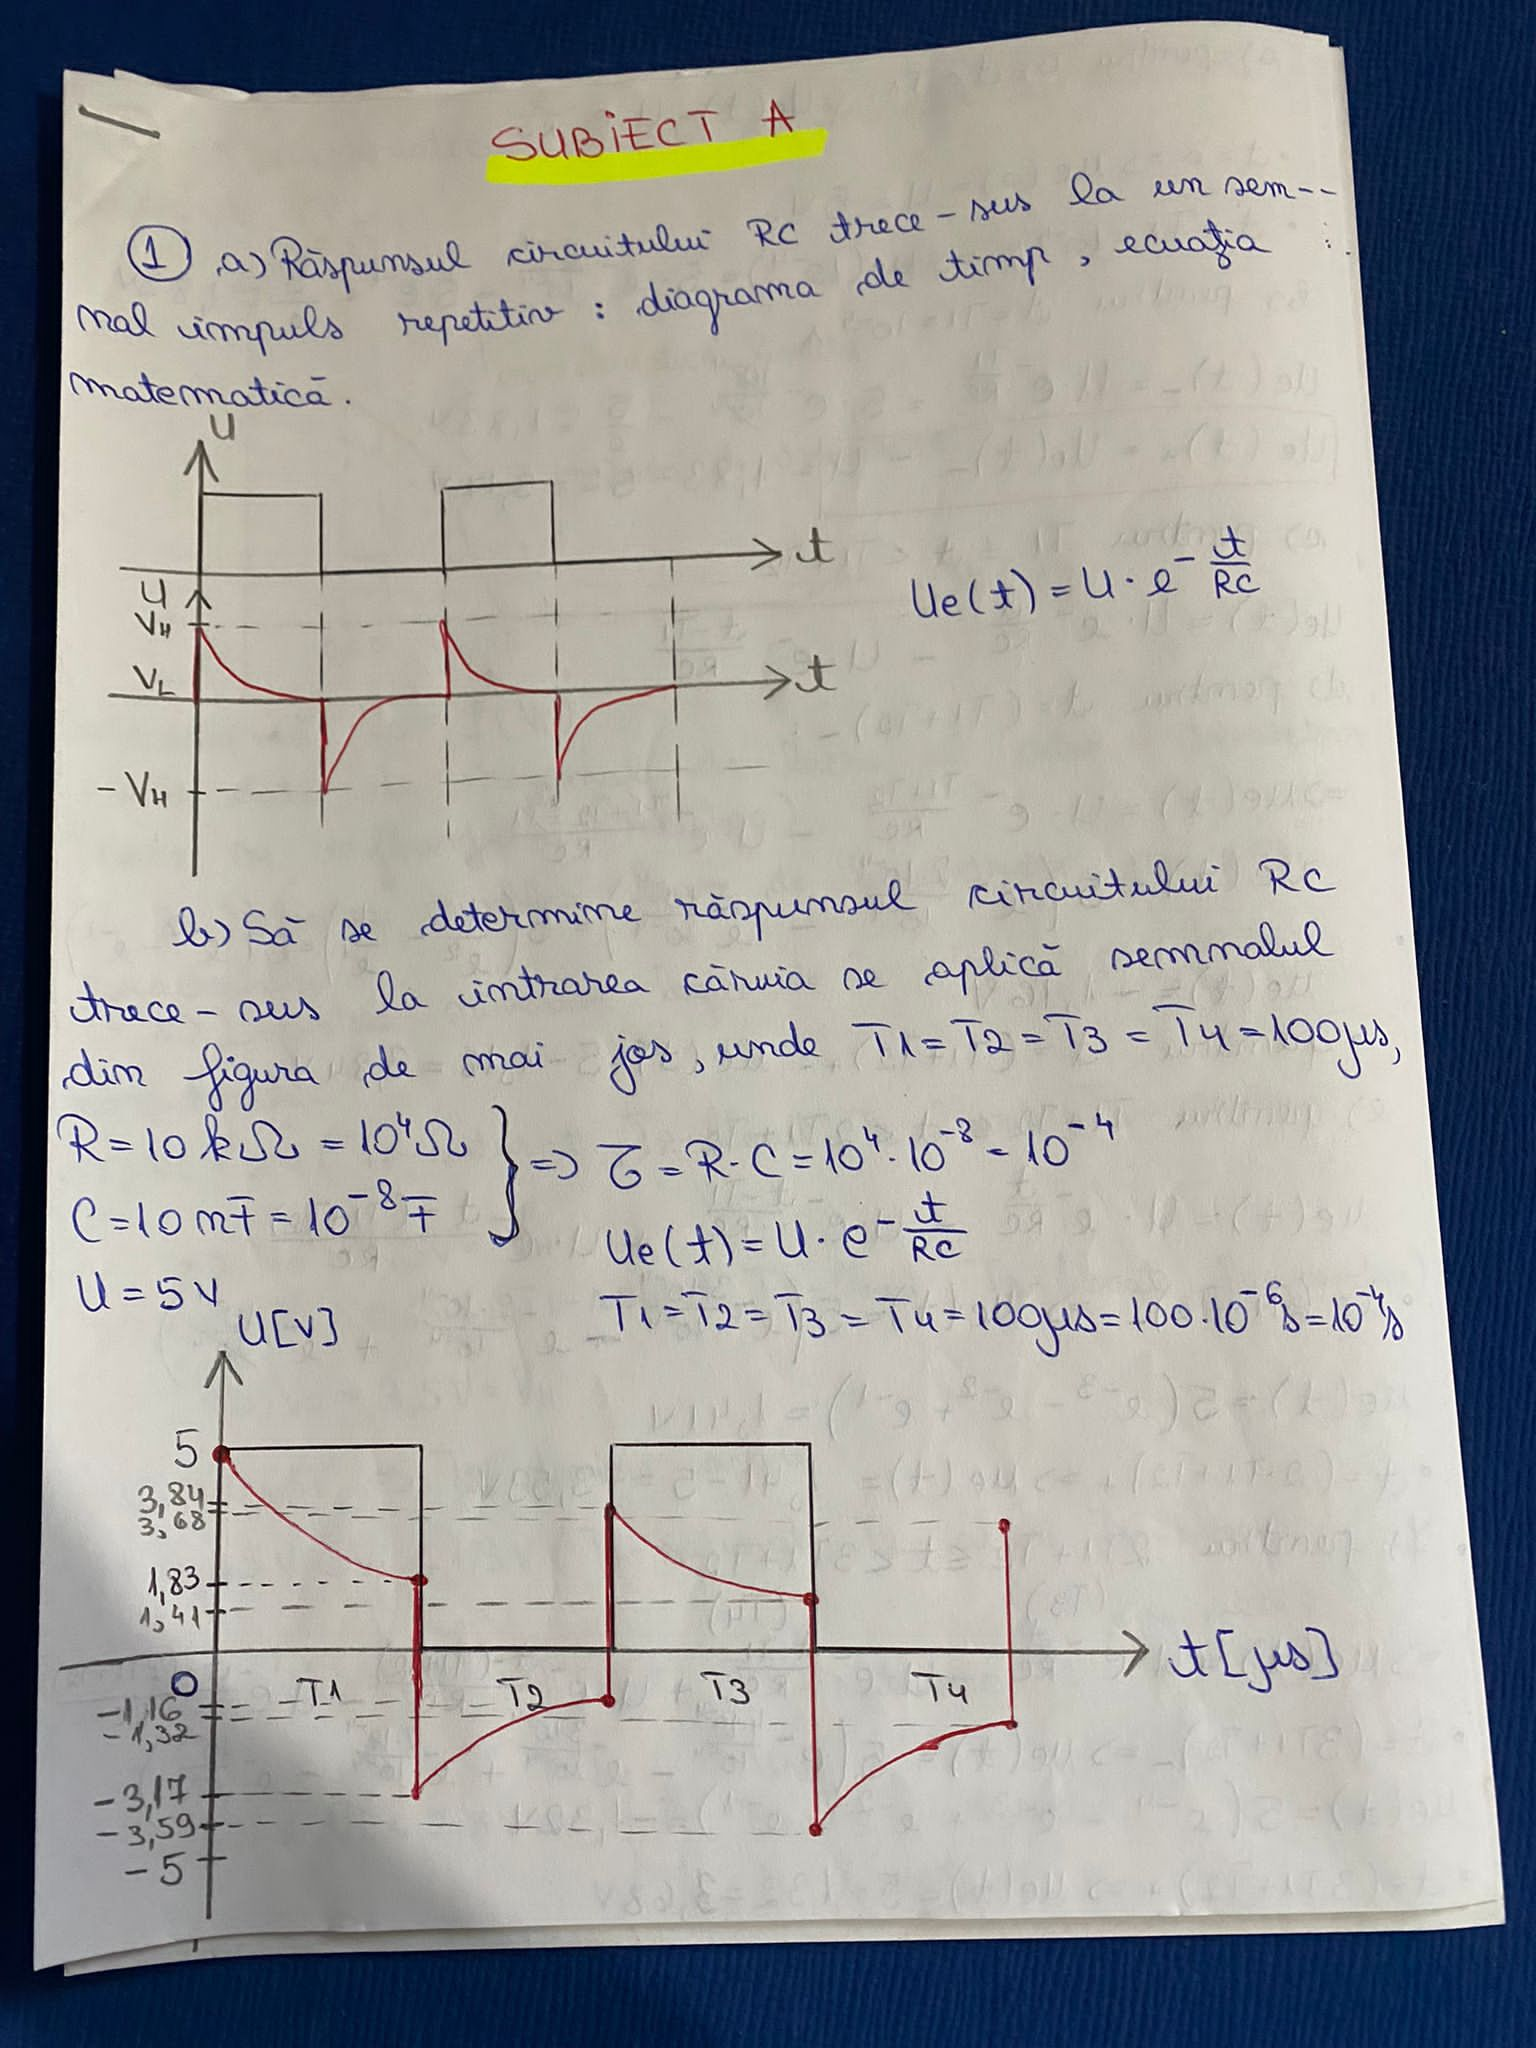 SUBiECT A
① a) Răspunsul circuitului RC trece-sus la un sem--
nal impuls repetitiv : diagrama de timp, ecuația
matematică.
U
t
Ue(t) = U · e^-t/RC
U
VH
VL
t
-VH
b) Să se determine răspunsul circuitului RC
trece-sus la intrarea căruia se aplică semnalul
din figura de mai jos, unde T1 = T2 = T3 = T4 = 100μs,
R = 10 kΩ = 10⁴Ω } => τ = R·C = 10⁴·10⁻⁸ = 10⁻⁴
C = 10 nF = 10⁻⁸ F
Ue(t) = U · e^-t/RC
U = 5V
T1 = T2 = T3 = T4 = 100μs = 100·10⁻⁶s = 10⁻⁴s
U[V]
5
3,84
3,68
1,83
1,41
t[μs]
0
T1 T2 T3 T4
-1,16
-1,32
-3,17
-3,59
-5